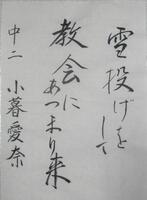 雪投げをして
教会に
あつまり来
中二 小暮愛奈